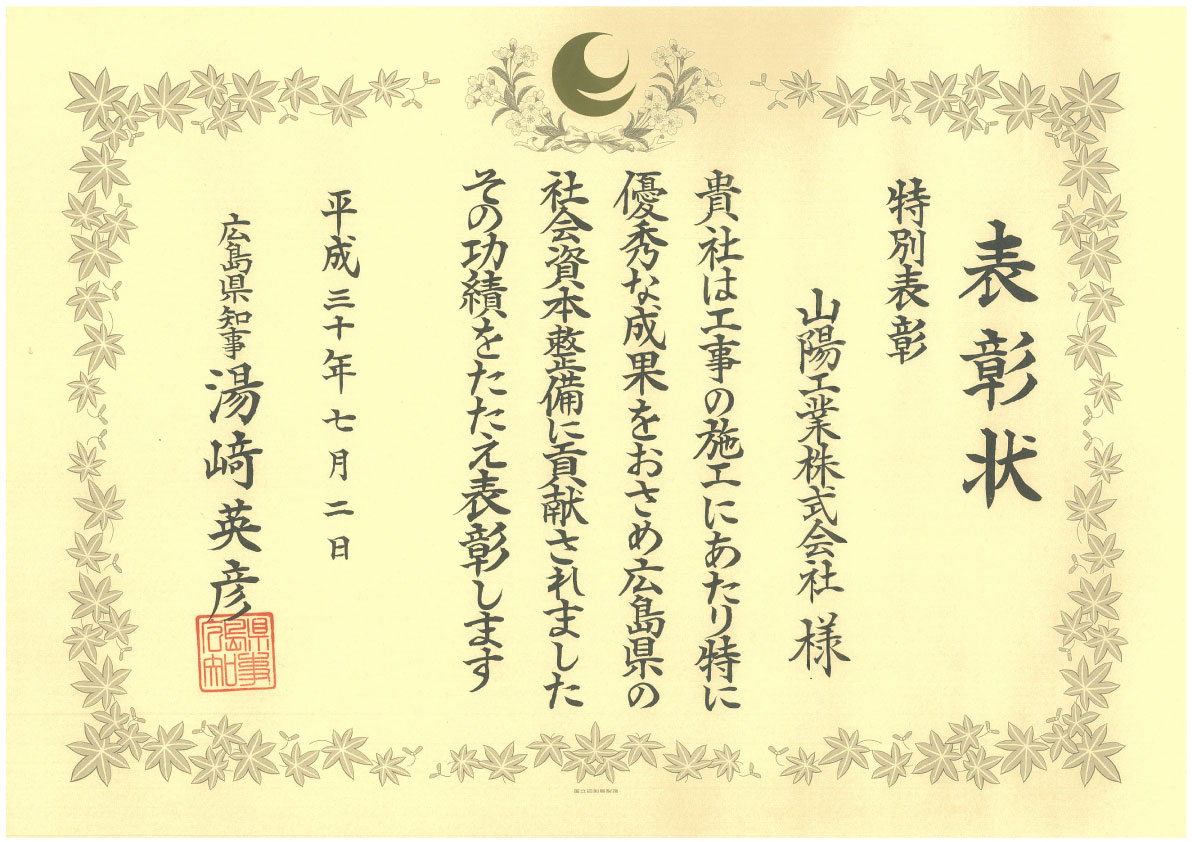 表彰状
特別表彰
山陽工業株式会社 様
貴社は工事の施工にあたり特に
優秀な成果をおさめ広島県の
社会資本整備に貢献されました
その功績をたたえ表彰します
平成三十年七月二日
広島県知事 湯﨑英彦